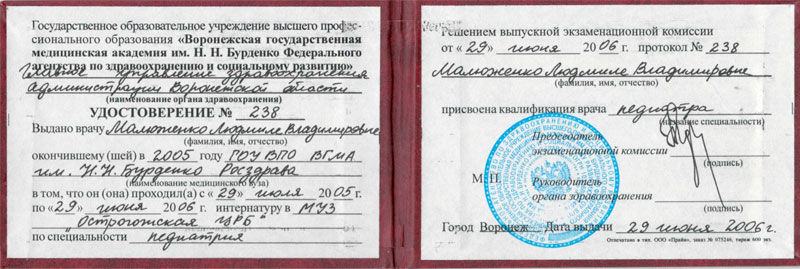 Государственное образовательное учреждение высшего профес-
сионального образования «Воронежская государственная
медицинская академия им. Н. Н. Бурденко Федерального
агентства по здравоохранению и социальному развитию»
Главное управление здравоохранения
администрации Воронежской области
(наименование органа здравоохранения)
УДОСТОВЕРЕНИЕ № 238
Выдано врачу Маможенко Людмиле Владимировне
(фамилия, имя, отчество)
окончившему (шей) в 2005 году ГОУ ВПО ВГМА
им. Н.Н. Бурденко Росздрава
(наименование медицинского вуза)
в том, что он (она) проходил(а) с «29» июля 2005 г.
по «29» июня 2006 г. интернатуру в МУЗ
"Острогожская ЦРБ"
по специальности педиатрия
Решением выпускной экзаменационной комиссии
от «29» июня 2006 г. протокол № 238
Маможенко Людмиле Владимировне
(фамилия, имя, отчество)
присвоена квалификация врача педиатра
(название специальности)
Председатель
экзаменационной комиссии
(подпись)
М. П.
Руководитель
органа здравоохранения
(подпись)
Город Воронеж Дата выдачи 29 июня 2006 г.
Отпечатано в тип. ООО «Прайм», заказ № 075246, тираж 600 экз.